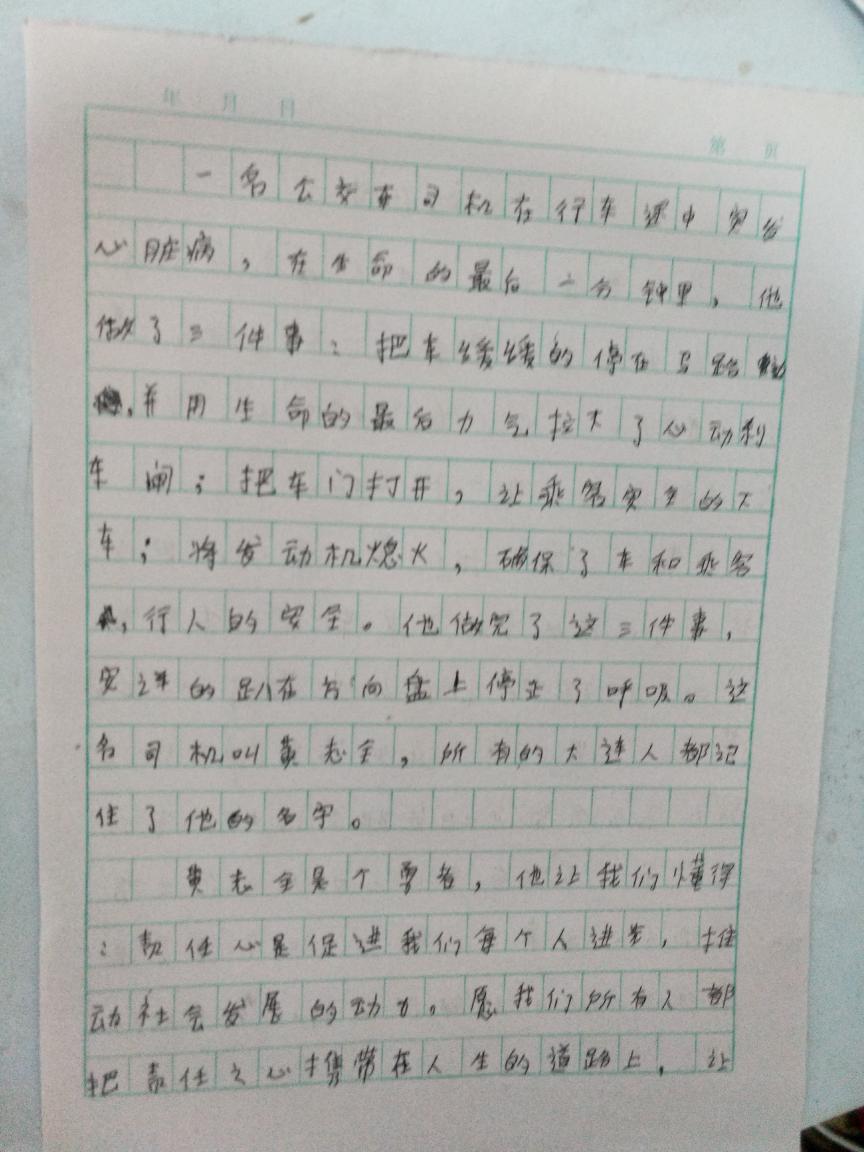 年 月 日
第 页
一名公交车司机在行车途中突发
心脏病，在生命的最后一分钟里，他
做了三件事：把车缓缓的停在马路
，并用生命的最后力气拉下了心动刹
车闸；把车门打开，让乘客安全的下
车；将发动机熄火，确保了车和乘客
，行人的安全。他做完了这三件事，
安详的趴在方向盘上停止了呼吸。这
名司机叫黄志全，所有的大连人都记
住了他的名字。
黄志全是个勇者，他让我们懂得
：责任心是促进我们每个人进步，推
动社会发展的动力。愿我们所有人都
把责任之心携带在人生的道路上，让